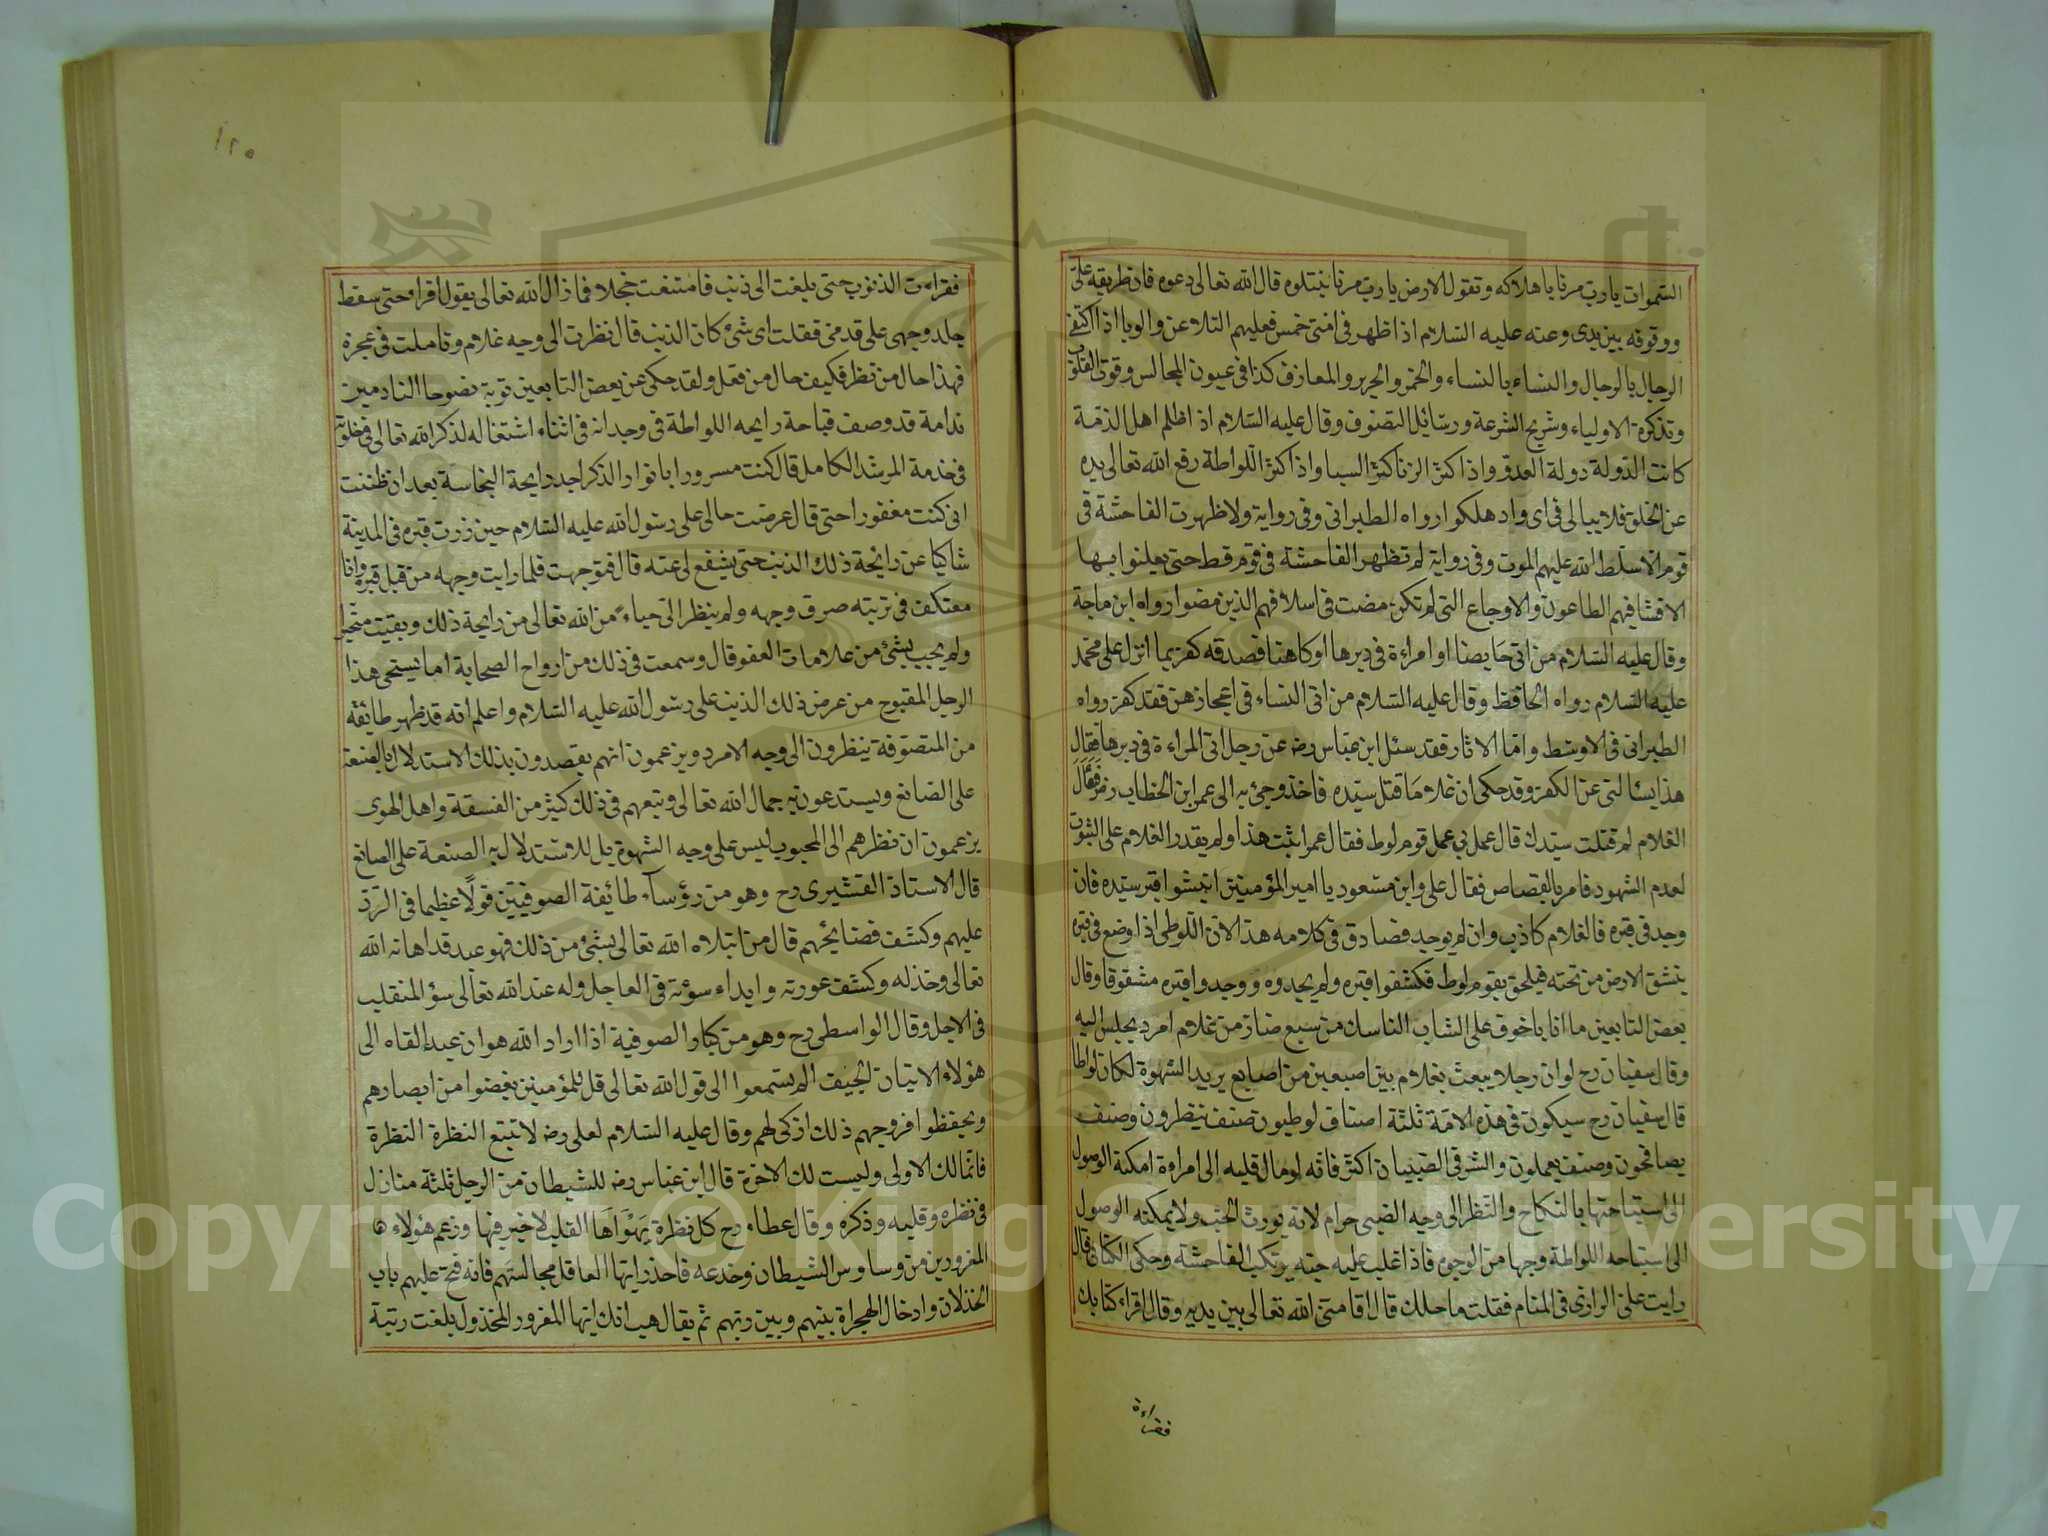 السموات يا رب مرنا باهلاكه وتقول الارض يا رب مرنا نبتلوه قال الله تعالى دعوه فان طريقه علىّ
ووقوفه بين يدى وعنه عليه السلام اذا ظهر فى امتى خمس فعليهم التلاعن والوبا اذا اكتفى
الرجال بالرجال والنساء بالنساء والخمر والحرير والمعازف كذا فى عيون المجالس وقوت القلوب
وتذكرة الاولياء وشريح الشرعة ورسائل التصوف وقال عليه السلام اذا ظلم اهل الذمة
كانت الدولة دولة العدو واذا كثر الزنا كثر السبا واذا كثر اللواطة رفع الله تعالى يده
عن الخلق فلا يبالى فى اى واد هلكوا رواه الطبرانى وفى رواية ولا ظهرت الفاحشة فى
قوم الا سلط الله عليهم الموت وفى رواية لم تظهر الفاحشة فى قوم قط حتى يعلنوا بها
الا فشا فيهم الطاعون والاوجاع التى لم تكن مضت فى اسلافهم الذين مضوا رواه ابن ماجة
وقال عليه السلام من اتى حايضا او امراءة فى دبرها او كاهنا فصدقه كفر بما انزل على محمد
عليه السلام رواه الحافظ وقال عليه السلام من اتى النساء فى اعجازهن فقد كفر رواه
الطبرانى فى الاوسط واما الاثار فقد سئل ابن عباس رضه عن رجل اتى المراءة فى دبرها فقال
هذا يسالنى عن الكفر وقد حكى ان غلاما قتل سيده فاخذ وجئ به الى عمر ابن الخطاب رضه فقال
الغلام لم قتلت سيدك قال عمل بي عمل قوم لوط فقال عمر اثبت هذا ولم يقدر الغلام على الثبوت
لعدم الشهود فامر بالقصاص فقال على وابن مسعود يا امير المؤمنين انبشوا قبر سيده فان
وجد فى قبره فالغلام كاذب وان لم يوجد فصادق فى كلامه هذا لان اللوطى اذا وضع فى قبره
ينشق الارض من تحته فيلحق بقوم لوط فكشفوا قبره ولم يجدوه ووجدوا قبره مشقوقا وقال
بعض التابعين ما انا باخوف على الشاب الناسك من سبع ضار من غلام امرد يجلس اليه
وقال سفيان رح لو ان رجلا يبعث بغلام بين اصبعين من اصابع يريد الشهوة لكان لواطا
قال سفيان رح سيكون فى هذه الامة ثلثة اصناف لوطيون صنف ينظرون وصنف
يصافحون وصنف يعملون والشر فى الصبيان اكثر فانه لو مال قلبه الى امراءة امكنه الوصول
الى استباحتها بالنكاح والنظر الى وجه الصبى حرام لانه يورث الحب ولا يمكنه الوصول
الى استباحه اللواطة وجها من الوجوه فاذا غلب عليه حبه يرتكب الفاحشة وحكى الكتانى قال
رايت على الرازى فى المنام فقلت ما حالك قال اقامنى الله تعالى بين يديه وقال اقراء كتابك
فقراءت
١٢٥
فقراءت الذنوب حتى بلغت الى ذنب فامتنعت خجلا فما زال الله تعالى يقول اقراء حتى سقط
جلد وجهى على قدمى فقلت اى شئ كان الذنب قال نظرت الى وجه غلام وتاملت فى عجزه
فهذا حال من نظر فكيف حال من فعل ولقد حكى عن بعض التابعين توبة نصوحا النادمين
ندامة قد وصف قباحة رايحه اللواطة فى وجدانه فى اثناء اشتغاله لذكر الله تعالى فى خلوته
فى خدمة المرشد الكامل قال كنت مسرورا بانوار الذكر اجد رايحة النجاسة بعد ان ظننت
انى كنت مغفورا حتى قال عرضت حالى على رسول الله عليه السلام حين زرت قبره فى المدينة
شاكيا عن رائحة ذلك الذنب حتى يشفع لى عنه قال فتوجهت فلما رايت وجهه من قبل قبره وانا
معتكف فى تربته صرف وجهه ولم ينظر الىّ حياء من الله تعالى من رايحة ذلك وبقيت متحيرا
ولم يجب بشئ من علامات العفو قال وسمعت فى ذلك من ارواح الصحابة اما يستحى هذا
الرجل المقبوح من عرض ذلك الذنب على رسول الله عليه السلام واعلم انه قد ظهر طائفة
من المتصوفة ينظرون الى وجه الامرد ويزعمون انهم يقصدون بذلك الاستدلال بالصنعة
على الصانع ويستدعون به جمال الله تعالى وتبعهم فى ذلك كثير من الفسقة واهل الهوى
يزعمون ان نظرهم الى المحبوب ليس على وجه الشهوة بل للاستدلال به الصنعة على الصانع
قال الاستاذ القشيرى رح وهو من رؤساء طائفة الصوفيين قولا عظيما فى الرد
عليهم وكشف فضائحهم قال من ابتلاه الله تعالى بشئ من ذلك فهو عبد قد اهانه الله
تعالى وخذله وكشف عورته وابداء سوءته فى العاجل وله عند الله تعالى سؤ المنقلب
فى الاجل وقال الواسطى رح وهو من كبار الصوفية اذا اراد الله هوان عبد القاه الى
هؤلاء الانتان الجيف الم يستمعوا الى قول الله تعالى قل للمؤمنين يغضوا من ابصارهم
ويحفظوا فروجهم ذلك ازكى لهم وقال عليه السلام لعلى رضه لا تتبع النظرة النظرة
فانما لك الاولى وليست لك الاخرة قال ابن عباس رضه للشيطان من الرجل ثلثة منازل
فى نظره وقلبه وذكره وقال عطاء رح كل نظرة يهواها القلب لا خير فيها وزعم هؤلاء
المغرورين من وساوس الشيطان وخدعه فاحذر ايها العاقل مجالستهم فانه فتح عليهم باب
الخذلان وادخال الهجراة بينهم وبين ربهم ثم يقال هب انك ايها المغرور المخذول بلغت رتبة
Copyright © King Saud University